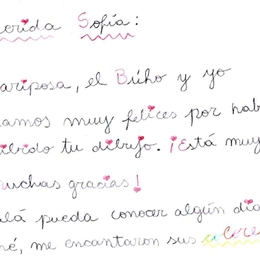 erida Sofía:
ariposa, el Búho y yo
amos muy felices por hab
ibido tu dibujo. ¡Está muy
uchas gracias!
lá pueda conocer algún dia
né, me encantaron sus colore